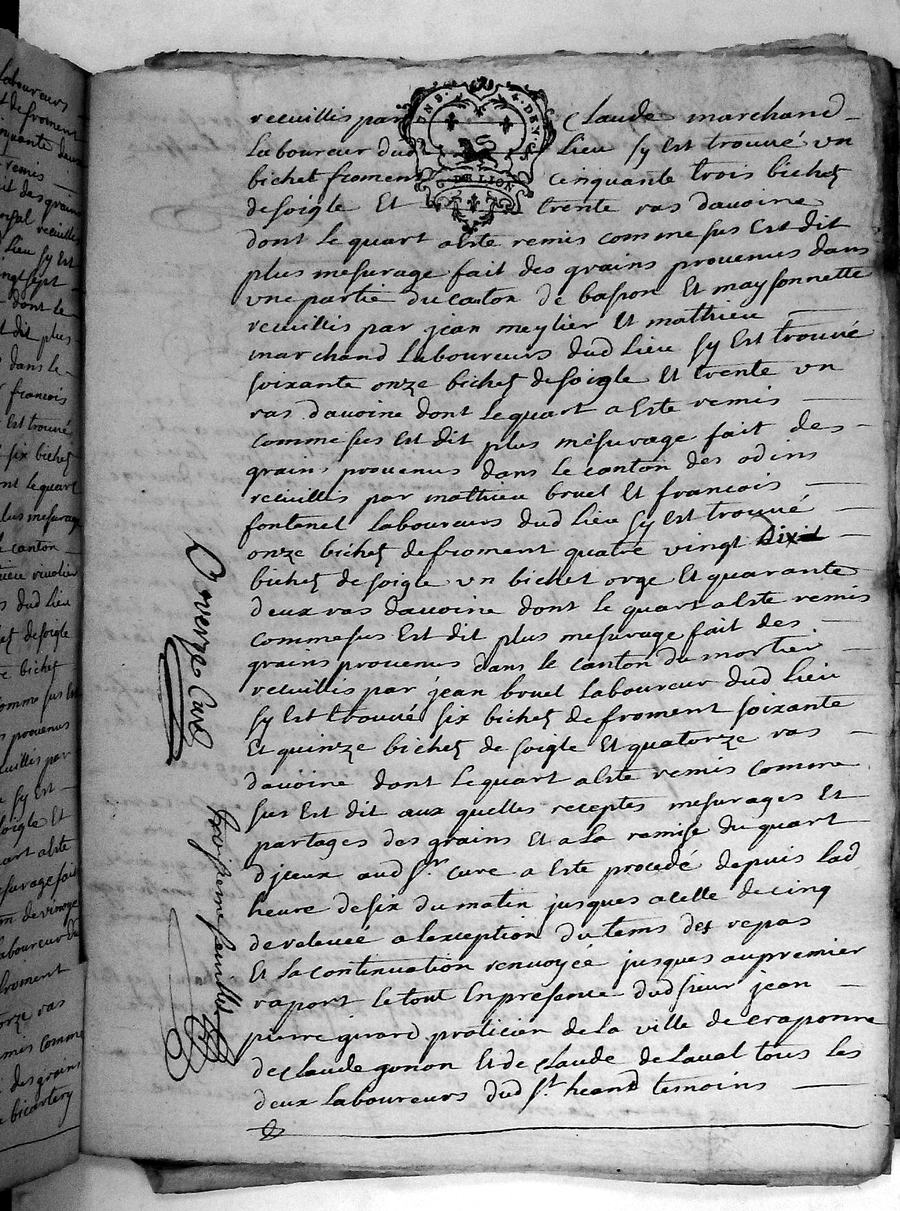 laboureurs
de froment
cinquante deux
remis
fait des grains
recuillis
Lieu sy Est
vingt sept
dont le
Est dit plus
dans le
francois
Est trouvé
six bichez
dont le quart
plus mesurage
le canton
dud Lieu
de soigle
bichet
comme sus Est
provenus
recuillis par
sy Est
soigle Et
quart a este
mesurage fait
canton de
laboureur
froment
ras
remis comme
des grains
UN S. 4 DEN.
G. DE LION
recuillis par Claude marchand
Laboureur dud Lieu sy Est trouvé vn
bichet froment cenquante trois bichez
de soigle Et trente ras davoine
dont Le quart a Este remis comme sus Est dit
plus mesurage fait des grains provenus dans
vne partie du canton de bason Et maysonnette
recuillis par jean meylier Et mathieu
marchand Laboureurs dud Lieu sy Est trouvé
soixante onze bichez de soigle Et trente vn
ras davoine dont Le quart a Este remis
comme sus Est dit plus mesurage fait des
grains provenus dans Le canton des odins
recuillis par mathieu bruel Et francois
fontanel Laboureurs dud Lieu sy Est trouvé
onze bichez de froment quatre vingt dix
bichez de soigle vn bichet orge Et quarante
deux ras davoine dont Le quart a Este remis
comme sus Est dit plus mesurage fait des
grains provenus dans le canton du mortier
recuillis par jean bruel Laboureur dud Lieu
sy Est trouvé six bichez de froment soixante
Et quinze bichez de soigle Et quatorze ras
davoine dont Le quart a Este remis comme
sus Est dit aux quelles receptes mesurages Et
partages des grains Et a La remise du quart
djceux aud Sr. cure a Este procedé depuis Lad
heure de six du matin jusques a celle de cinq
de relevée a Lexception du tems des repas
Et La continuation renvoyée jusques au premier
raport Le tout En presence dud sieur jean
pierre girard praticien de La ville de craponne
de Claude gonon Et de Claude de Laval tous Les
deux Laboureurs dud St. heand temoins
Curé
troisieme feuillet